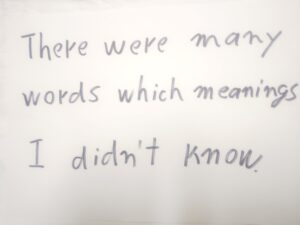 There were many
words which meanings
I didn't know.